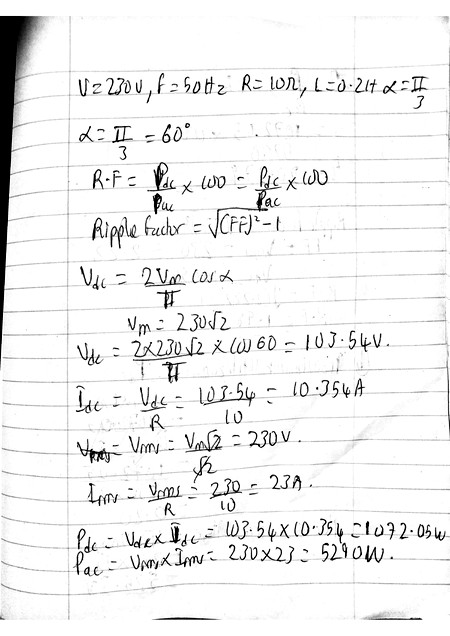 V=230V, f=50Hz R=10Ω, L=0.2H α=π/3
α=π/3 =60°
R.F= Pdc/Pac x 100 = Pdc/Pac x 100
Ripple factor = √(FF)²-1
Vdc = 2Vm/π cos α
Vm = 230√2
Vdc = 2x230√2/π x cos 60 = 103.54V.
Idc = Vdc/R = 103.54/10 = 10.354A
Vrms = Vm√2/√2 = 230V.
Irms = Vrms/R = 230/10 = 23A.
Pdc = Vdc x Idc = 103.54x10.354=1072.05W
Pac = Vrms x Irms = 230x23 = 5290W.